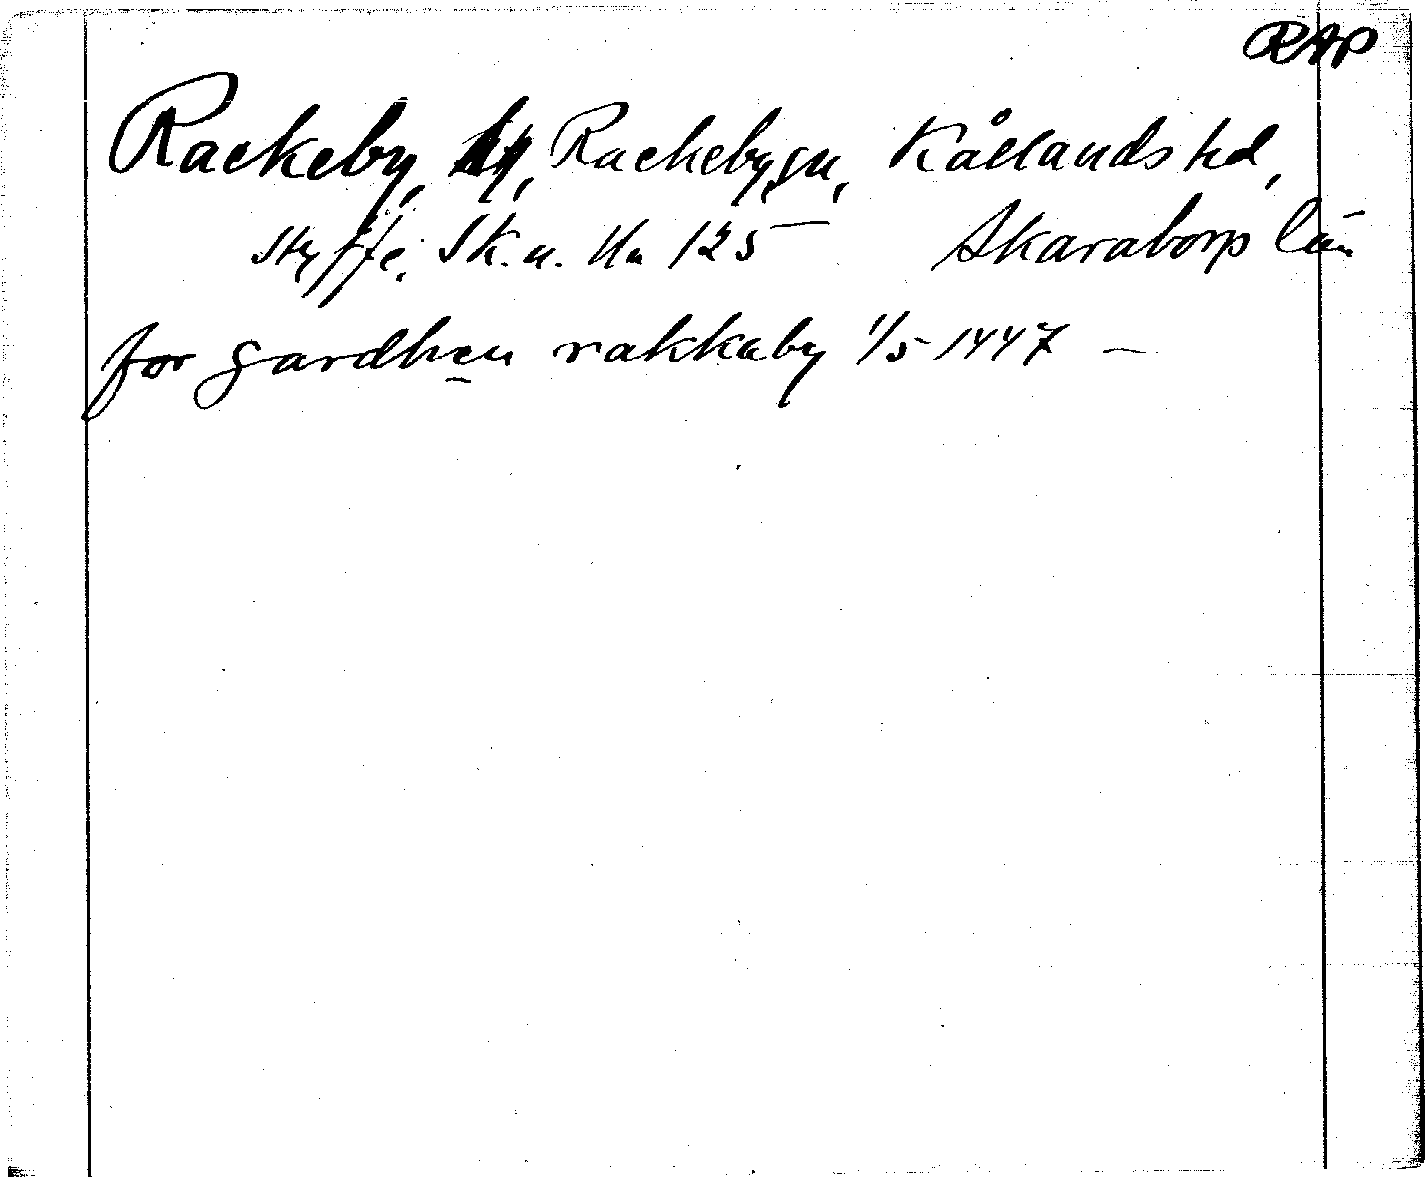 RAP
Rackeby, by, Rackeby sn, Kållands hd,
Styffe, Sk. u. Un 125 Skaraborgs län
for gardhen rakkaby 1/5 1447 —